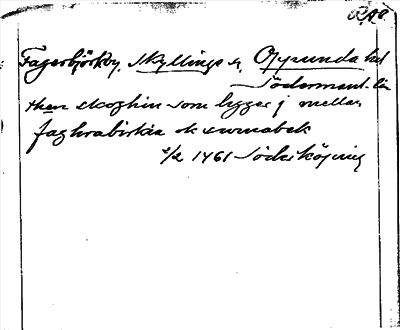 RAP.
Fagerbjörkby, Skyllinge s., Oppunda hd
Södermanl. län
then skoghin som ligger j mellan
faghrabirkia ok swinabek
2/2 1461 Söderköping